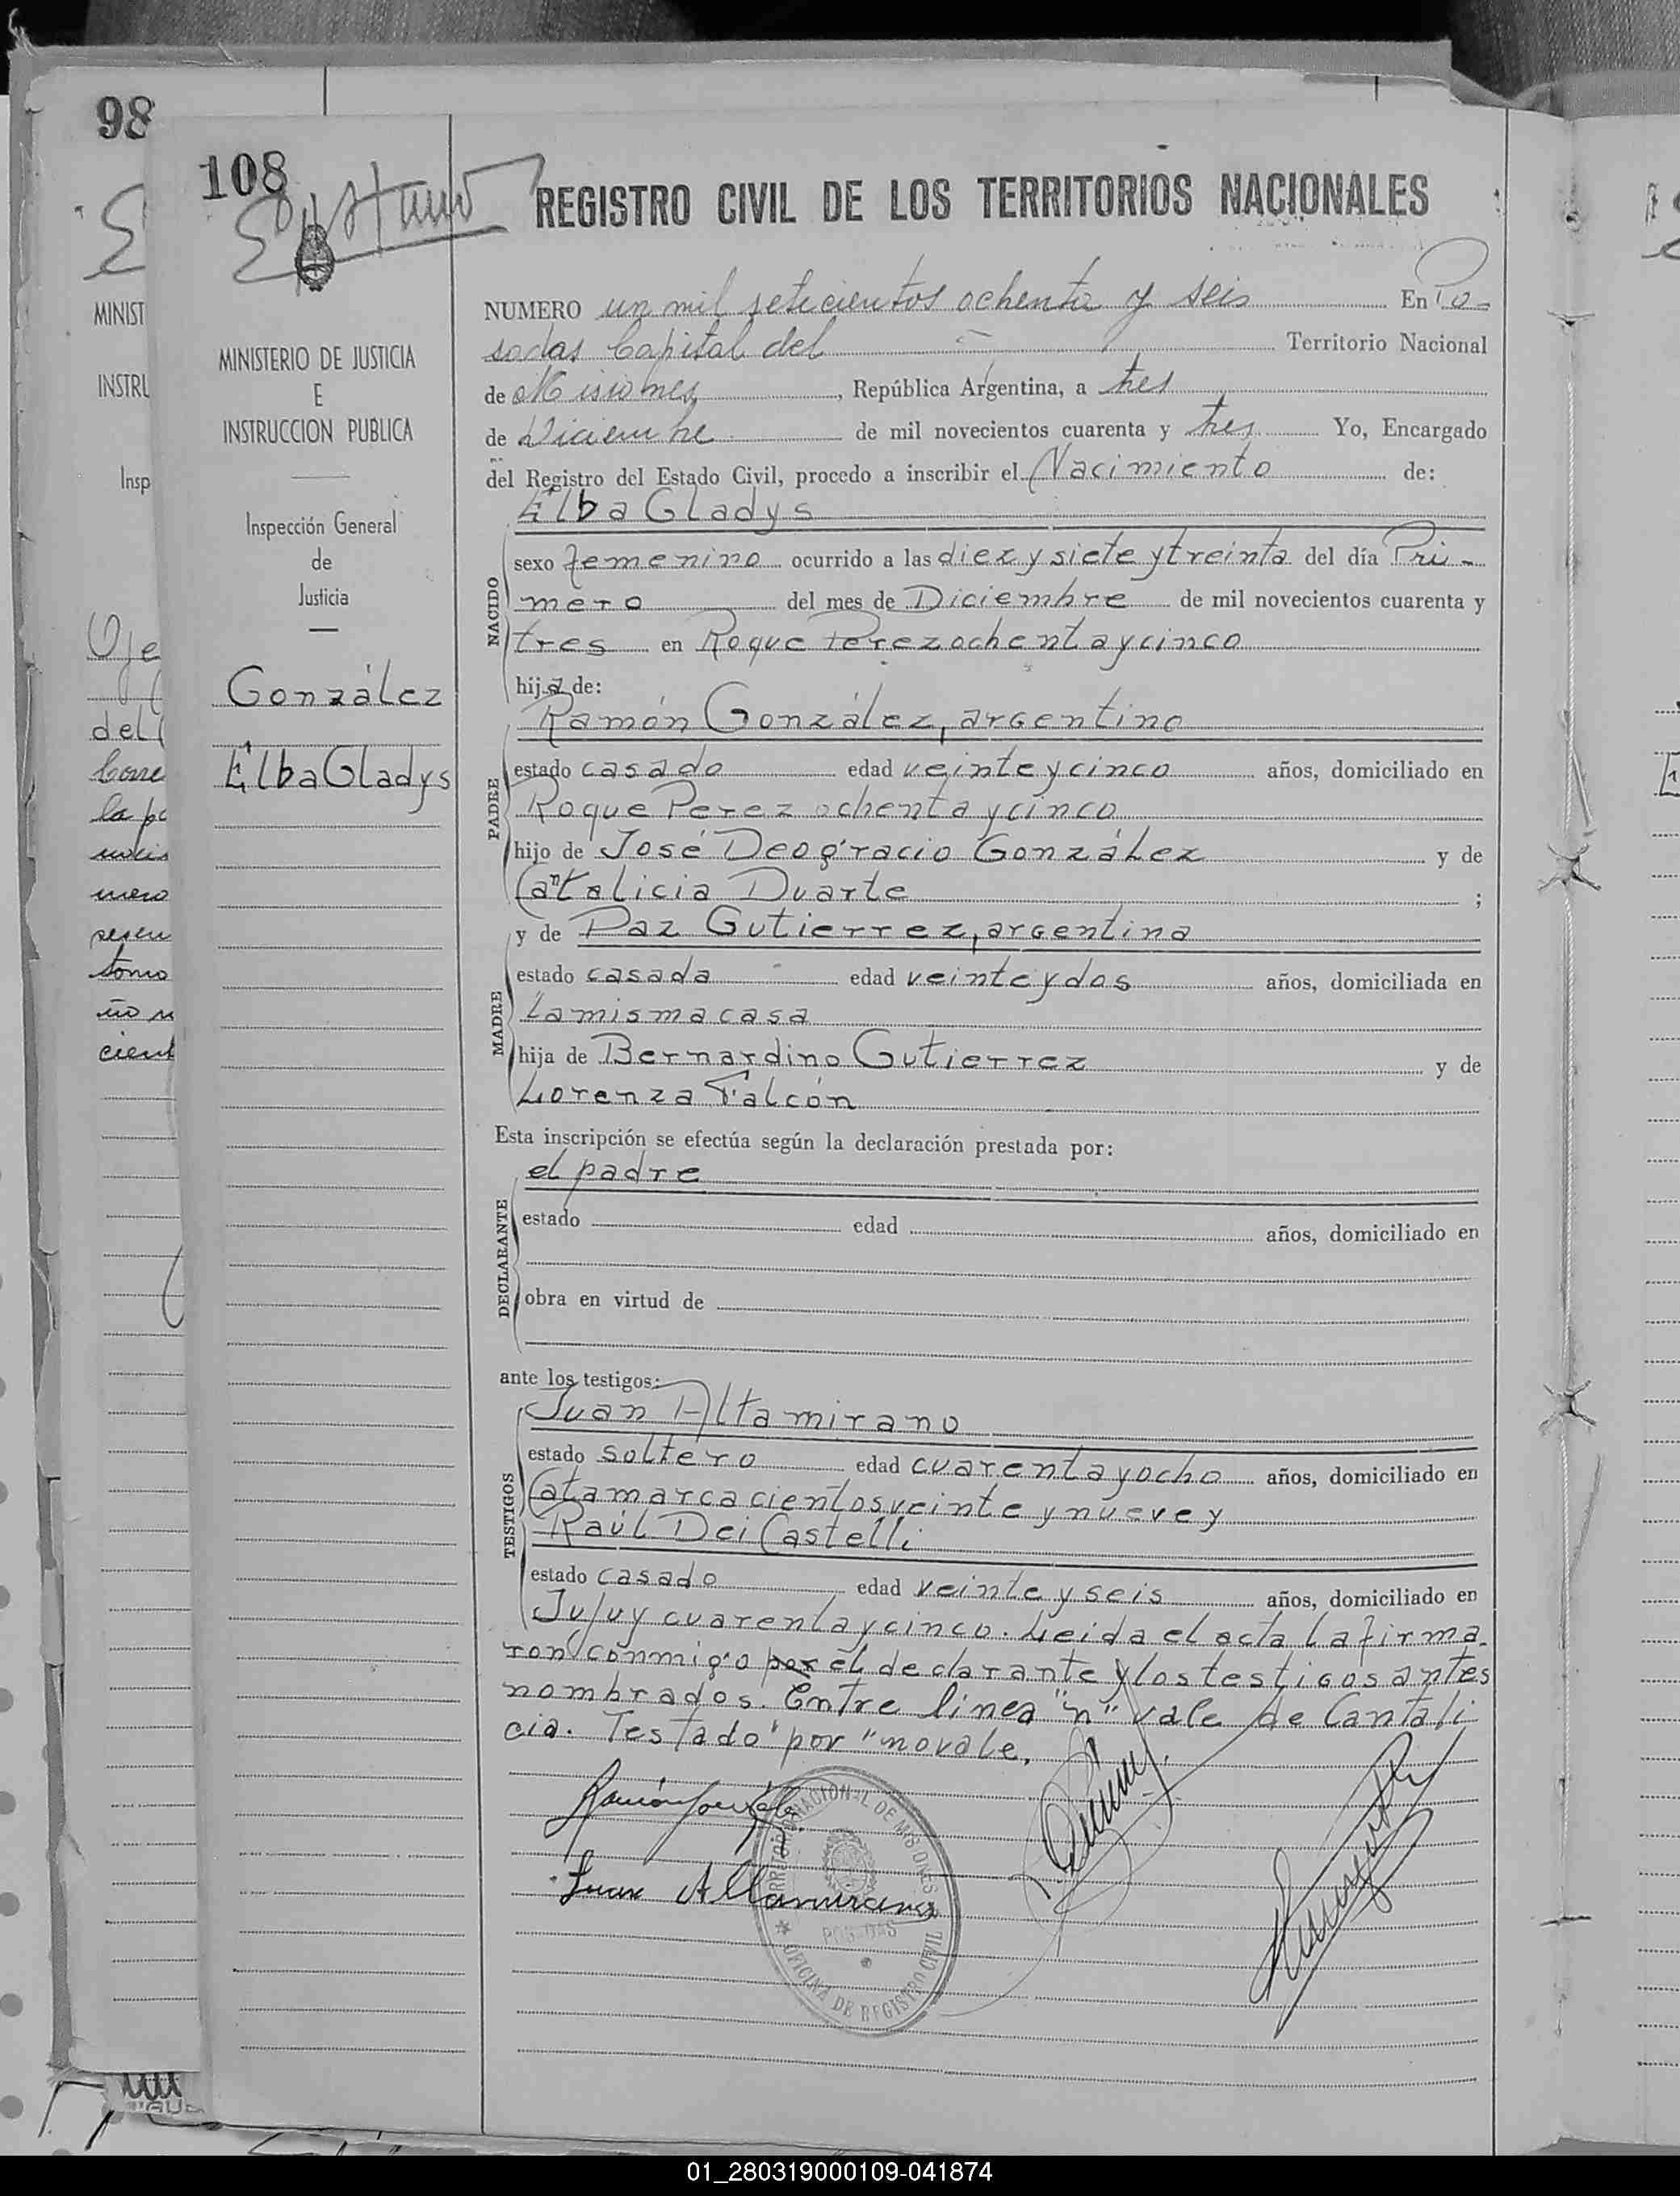 98
108
REGISTRO CIVIL DE LOS TERRITORIOS NACIONALES
MINIST
INSTRU
Insp
MINISTERIO DE JUSTICIA
E
INSTRUCCION PUBLICA
Inspección General
de
Justicia
González
Elba Gladys
del
la
tomo
NUMERO un mil seticientos ochenta y seis En Po-
sadas Capital del Territorio Nacional
de Misiones, República Argentina, a tres
de Diciembre de mil novecientos cuarenta y tres Yo, Encargado
del Registro del Estado Civil, procedo a inscribir el Nacimiento de:
Elba Gladys
NACIDO
sexo femenino ocurrido a las diez y siete y treinta del día Pri-
mero del mes de Diciembre de mil novecientos cuarenta y
tres en Roque Perez ochenta y cinco
hija de:
Ramón González, argentino
PADRE
estado casado edad veinte y cinco años, domiciliado en
Roque Perez ochenta y cinco
hijo de José Deogracio González y de
Cantalicia Duarte ;
y de Paz Gutierrez, argentina
MADRE
estado casada edad veinte y dos años, domiciliada en
La misma casa
hija de Bernardino Gutierrez y de
Lorenza Falcón
Esta inscripción se efectúa según la declaración prestada por:
el padre
DECLARANTE
estado edad años, domiciliado en
obra en virtud de
ante los testigos:
Juan Altamirano
TESTIGOS
estado soltero edad cuarenta y ocho años, domiciliado en
Catamarca cientos veinte y nueve y
Raúl Dei Castelli
estado casado edad veinte y seis años, domiciliado en
Jujuy cuarenta y cinco. Leida el acta la firma-
ron conmigo por el declarante y los testigos antes
nombrados. Entre linea "n" vale de Cantali
cia. Testado "por" no vale.
Ramón González
Juan Altamirano
TERRITORIO NACIONAL DE MISIONES
POSADAS
OFICINA DE REGISTRO CIVIL
01_280319000109-041874